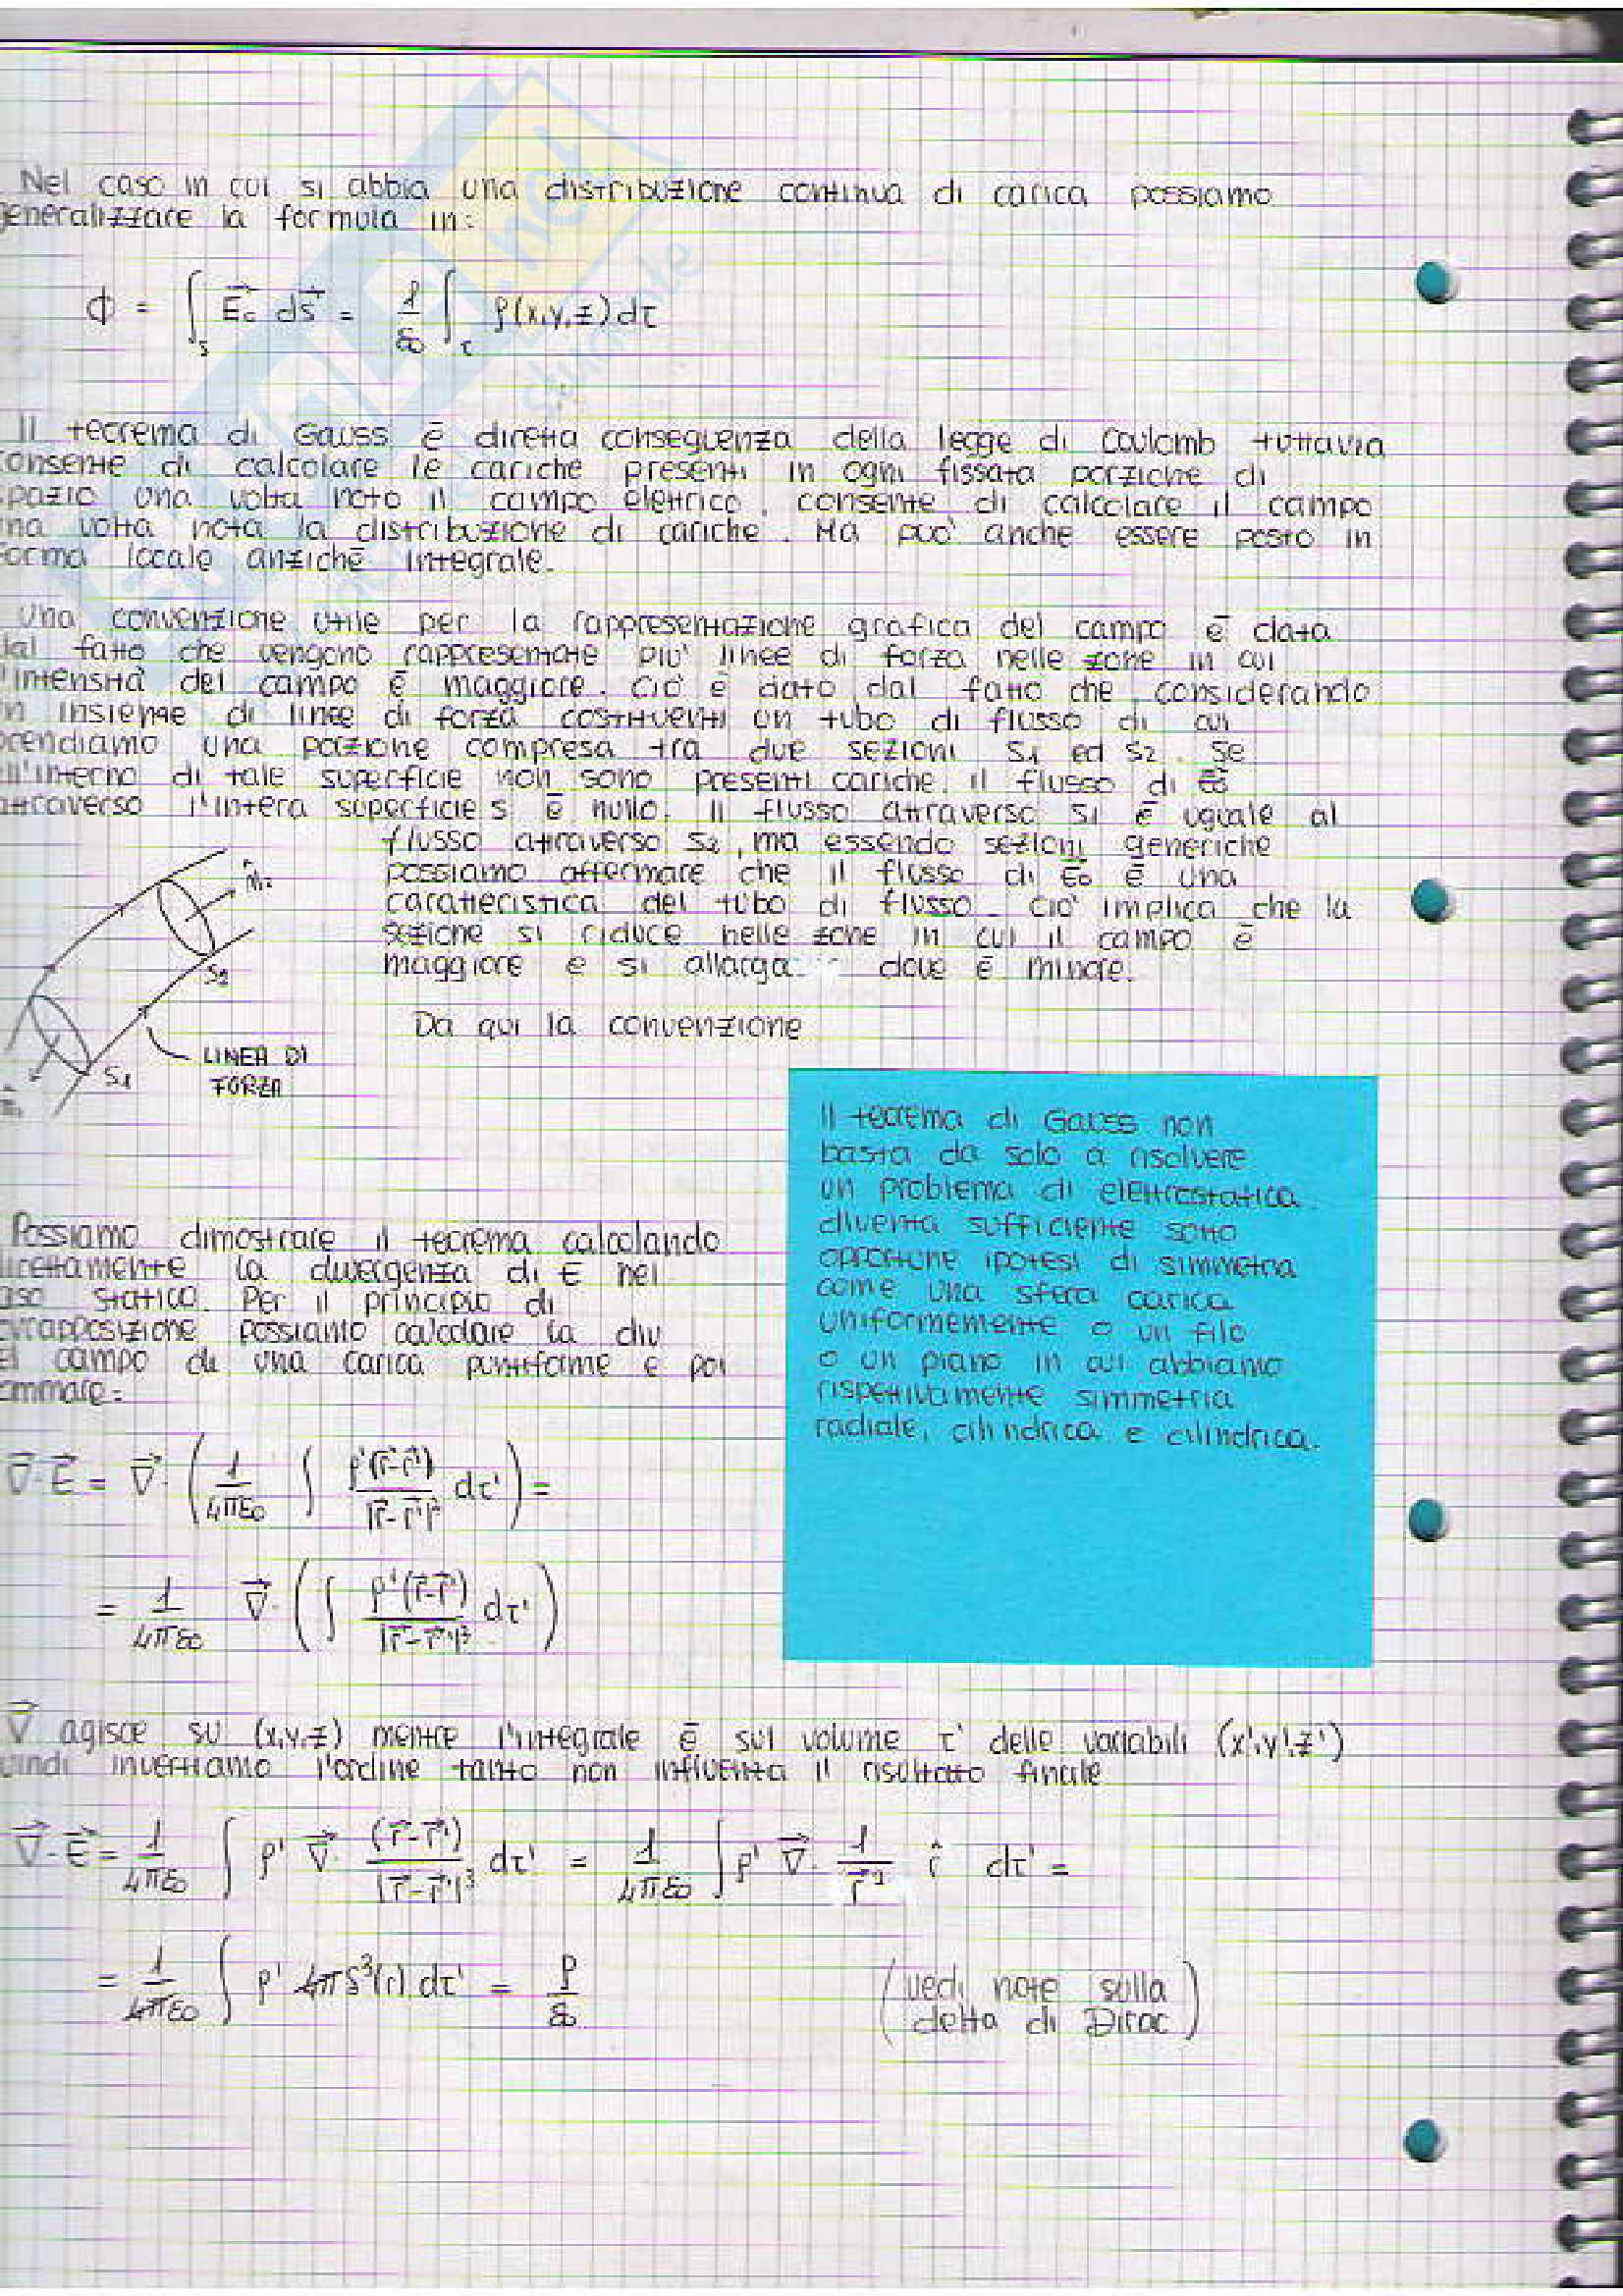 Nel caso in cui si abbia una distribuzione continua di carica possiamo
generalizzare la formula in:
Φ = ∫s E⃗o ds⃗ = 1/ε0 ∫τ ρ(x,y,z) dτ
Il teorema di Gauss ē diretta conseguenza della legge di Coulomb tuttavia
consente di calcolare le cariche presenti in ogni fissata porzione di
spazio una volta noto il campo elettrico, consente di calcolare il campo
una volta nota la distribuzione di cariche. Ma può anche essere posto in
forma locale anziché integrale.
Una convenzione utile per la rappresentazione grafica del campo ē data
dal fatto che vengono rappresentate più linee di forza nelle zone in cui
l'intensità del campo ē maggiore. Ciò ē dato dal fatto che, considerando
un insieme di linee di forza costituenti un tubo di flusso di cui
prendiamo una porzione compresa tra due sezioni S1 ed S2. Se
all'interno di tale superficie non sono presenti cariche, il flusso di E⃗o
attraverso l'intera superficie S ē nullo. Il flusso attraverso S1 ē uguale al
flusso attraverso S2, ma essendo sezioni generiche
possiamo affermare che il flusso di E⃗o ē una
caratteristica del tubo di flusso. Ciò implica che la
sezione si riduce nelle zone in cui il campo ē
maggiore e si allarga dove ē minore.
n̂2
S2
S1
n̂1
LINEA DI
FORZA
Da qui la convenzione
Il teorema di Gauss non
basta da solo a risolvere
un problema di elettrostatica.
diventa sufficiente sotto
opportune ipotesi di simmetria
come una sfera carica
uniformemente o un filo
o un piano in cui abbiamo
rispettivamente simmetria
radiale, cilindrica e cilindrica.
Possiamo dimostrare il teorema calcolando
direttamente la divergenza di E nel
caso statico. Per il principio di
sovrapposizione possiamo calcolare la div
del campo di una carica puntiforme e poi
sommare:
∇⃗·E⃗ = ∇⃗·(1/4πε0 ∫ ρ'(r⃗-r⃗')/|r⃗-r⃗'|³ dτ') =
= 1/4πε0 ∇⃗·(∫ ρ'(r⃗-r⃗')/|r⃗-r⃗'|³ dτ')
∇⃗ agisce su (x,y,z) mentre l'integrale ē sul volume τ' delle variabili (x',y',z')
quindi invertiamo l'ordine tanto non influenza il risultato finale
∇⃗·E⃗ = 1/4πε0 ∫ ρ' ∇⃗· (r⃗-r⃗')/|r⃗-r⃗'|³ dτ' = 1/4πε0 ∫ ρ' ∇⃗· 1/r⃗² r̂ dτ' =
= 1/4πε0 ∫ ρ' 4πδ³(r) dτ' = ρ/ε0
(vedi note sulla
delta di Dirac)